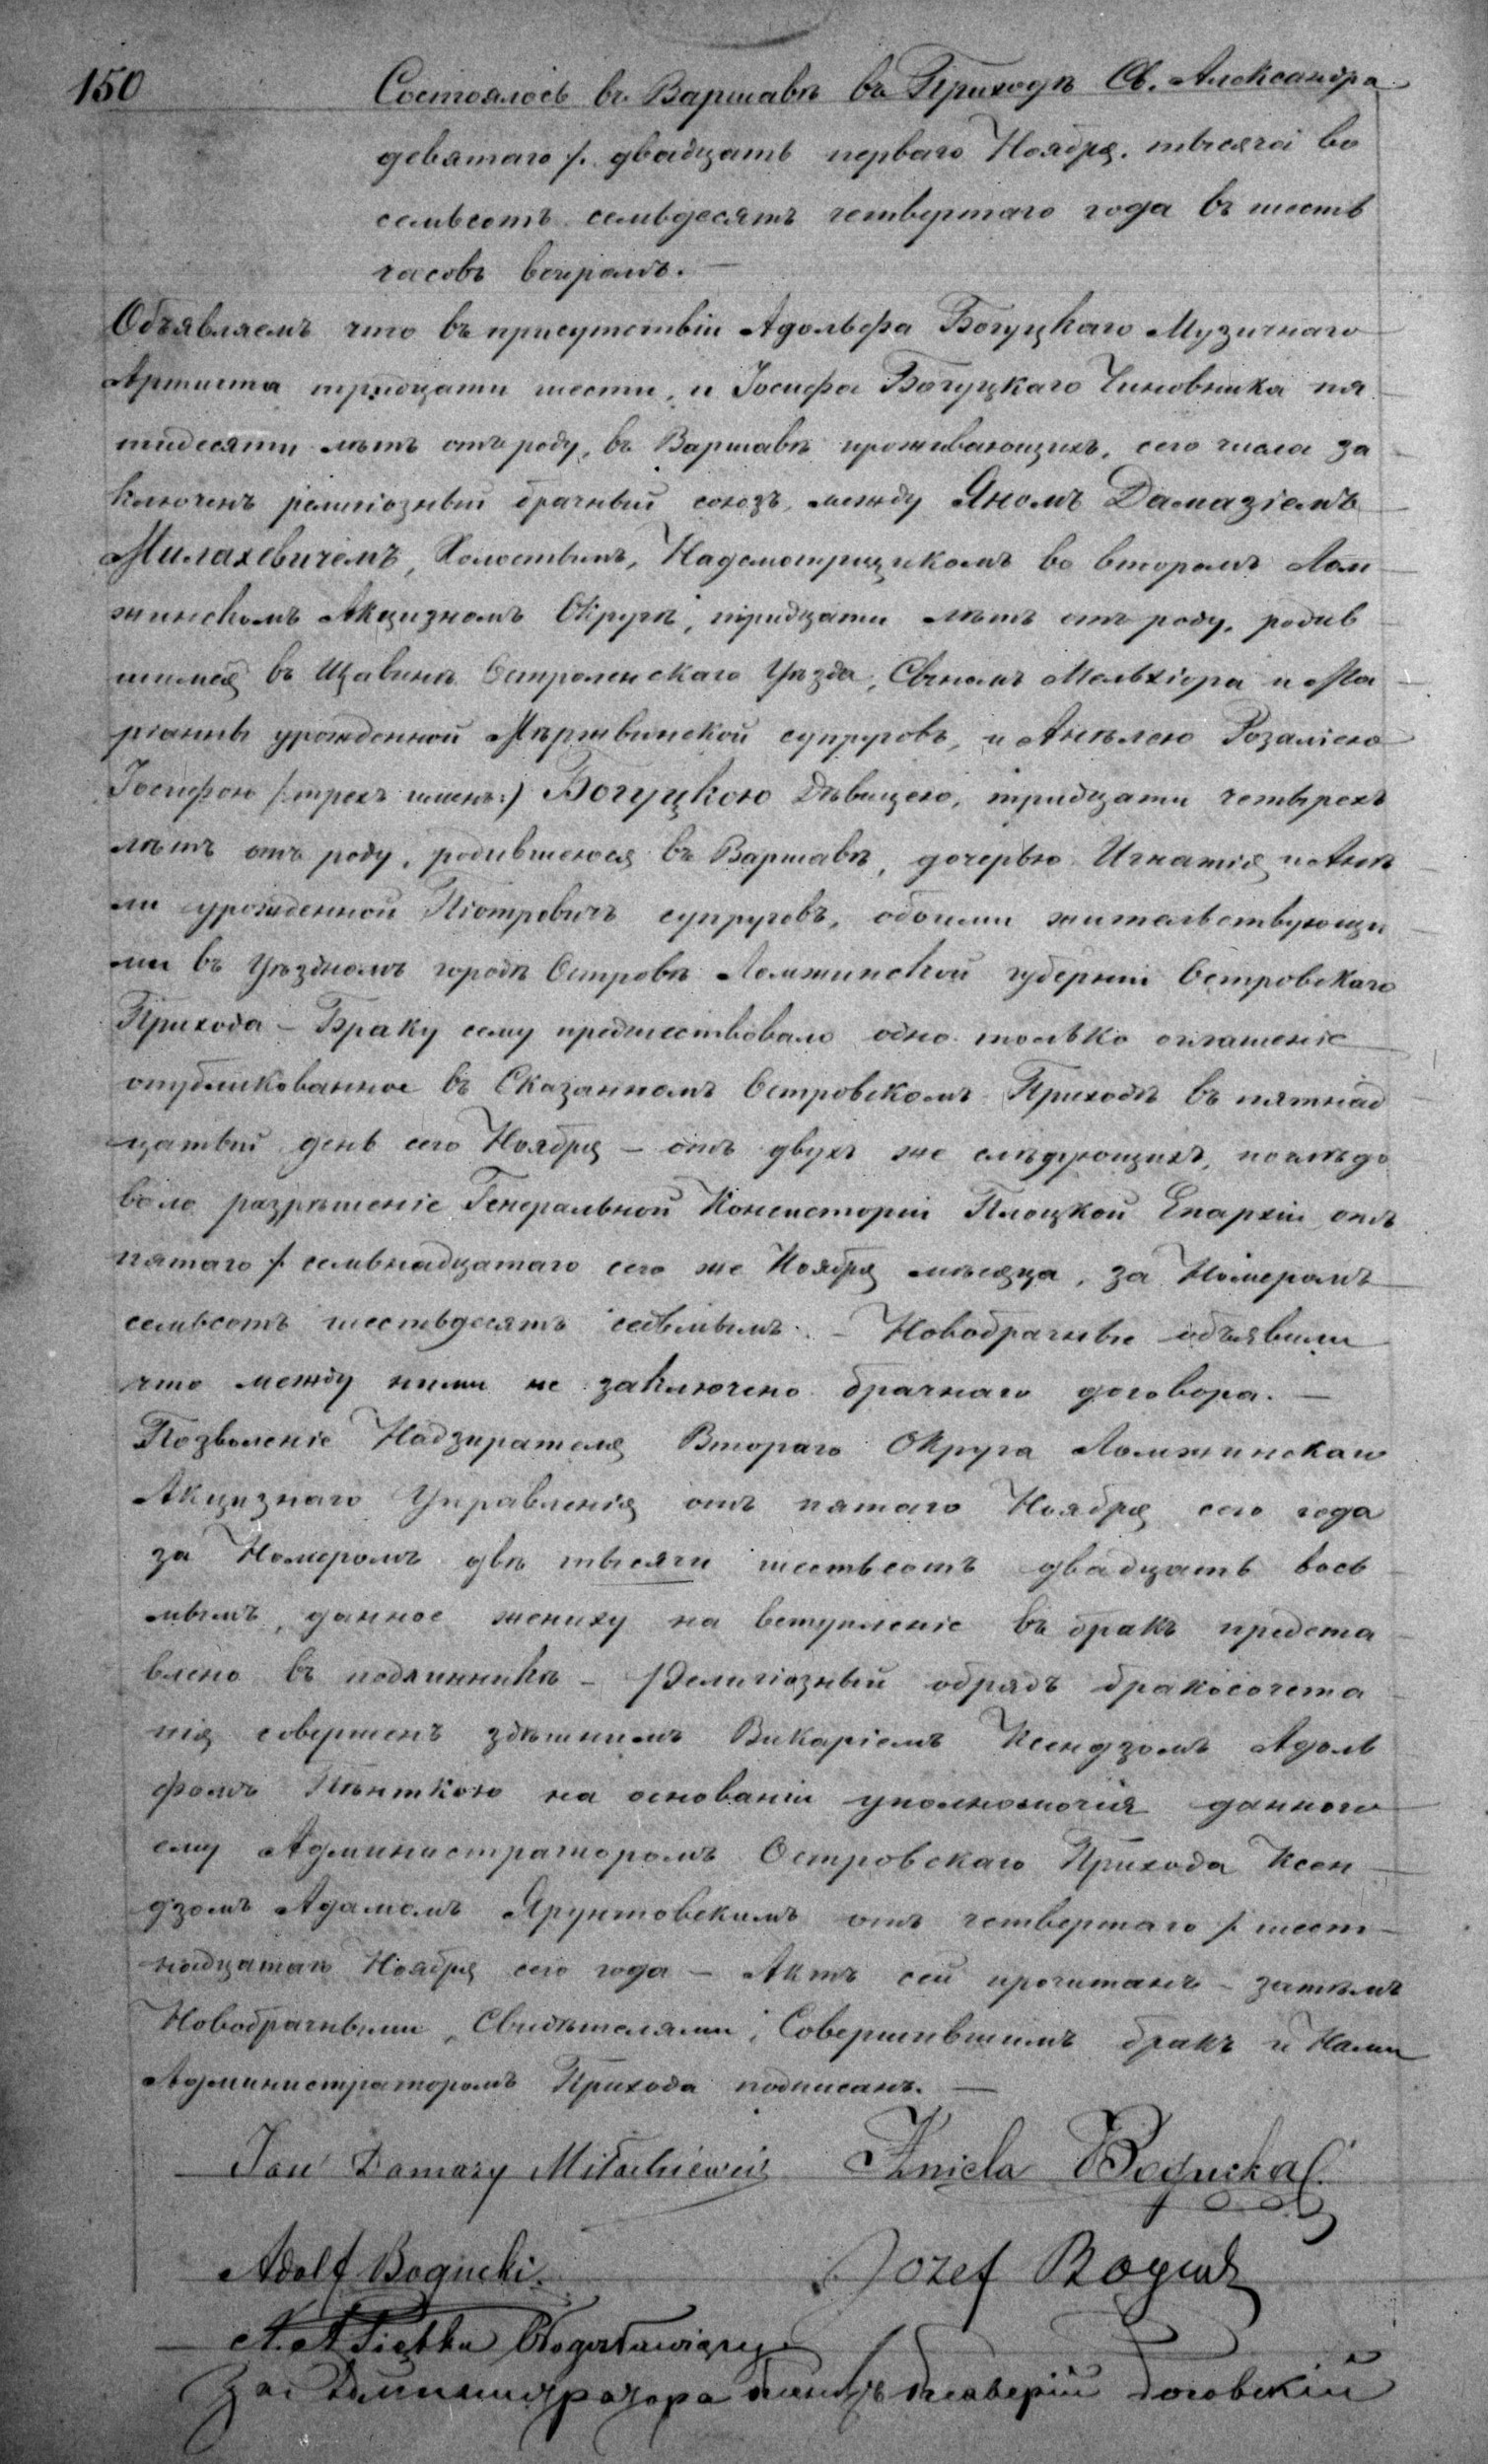 150
Состоялось въ Варшавѣ въ Приходѣ Св. Александра
девятаго /. двадцать перваго Ноября. тысяча во
семьсотъ семьдесятъ четвертаго года въ шесть
часовъ вечеромъ. —
Объявляемъ что въ присутствіи Адольфа Богуцкаго Музичнаго
Артиста тридцати шести, и Іосифа Богуцкаго Чиновника пя
тидесяти лѣтъ отъ роду, въ Варшавѣ проживающихъ, сего числа за
ключенъ религіозный брачный союзъ, между Яномъ Дамазіемъ
Милахевичемъ, Холостымъ, Надсмотрщикомъ во второмъ Лом
жинскомъ Акцизномъ Округѣ, тридцати лѣтъ отъ роду, родив
шимся въ Щавинѣ Остроленскаго Уѣзда, Сыномъ Мельхіора и Ма
ріанны урожденной Мѣржвинской супруговъ, и Анѣлею Розаліею
Іосифою /:трехъ именъ:/ Богуцкою Дѣвицею, тридцати четырехъ
лѣтъ отъ роду, родившеюся въ Варшавѣ, дочерью Игнатія и Анѣ
ли урожденной Піотровичъ супруговъ, обоими жительствующи
ми въ Уѣздномъ городѣ Островѣ Ломжинской губерніи Островскаго
Прихода — Браку сему предшествовало одно только оглашеніе
опубликованное въ Сказанномъ Островскомъ Приходѣ въ пятнад
цатый день сего Ноября — отъ двухъ же слѣдующихъ, послѣдо
вало разрѣшеніе Генеральной Консисторіи Плоцкой Епархіи отъ
пятаго /. семьнадцатаго сего же Ноября мѣсяца, за Номеромъ
семьсотъ шестьдесятъ седьмымъ. — Новобрачные объявили
что между ними не заключено брачнаго договора. —
Позволеніе Надзирателя Втораго Округа Ломжинскаго
Акцизнаго Управленія отъ пятаго Ноября сего года
за Номеромъ двѣ тысячи шестьсотъ двадцать вось
мымъ, данное жениху на вступленіе въ бракъ предста
влено въ подлинникѣ — Религіозный обрядъ бракосочета
нія совершенъ здѣшнимъ Викаріемъ Ксендзомъ Адоль
фомъ Пѣнткою на основаніи уполномочія даннаго
ему Администраторомъ Островскаго Прихода Ксен
дзомъ Адамомъ Ярунтовскимъ отъ четвертаго /. шест
надцатаго Ноября сего года — Актъ сей прочитанъ — затѣмъ
Новобрачными, Свидѣтелями, Совершившимъ бракъ и Нами
Администраторомъ Прихода подписанъ. —
Jan Damazy Miłachiewicz Aniela Bogucka
Adolf Bogucki. Jozef Bogucki
X. A Piętka Błogosławiący
За Администратора